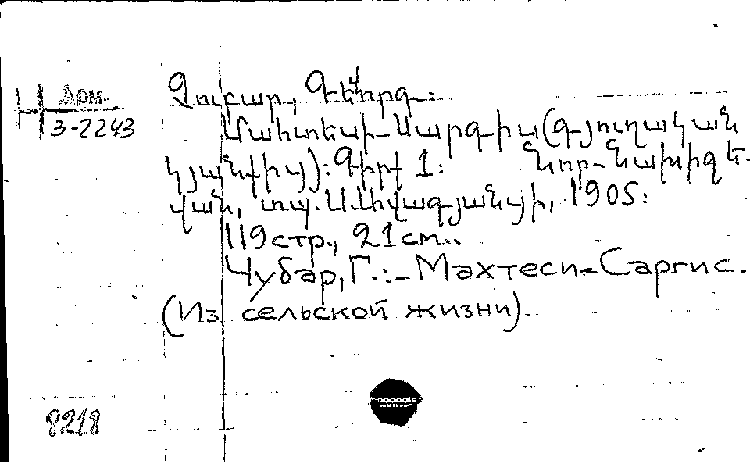 Арм.
3-2243
Չուբար, Գևորգ։
Մահտեսի-Սարգիս (գյուղական
կյանքից)։ Գիրք 1։ Նոր-Նախիջե-
վան, տպ. Ս. Ավագյանցի, 1905։
119стр., 21см..
Чубар, Г.:- Махтеси-Саргис.
(Из сельской жизни).
8218